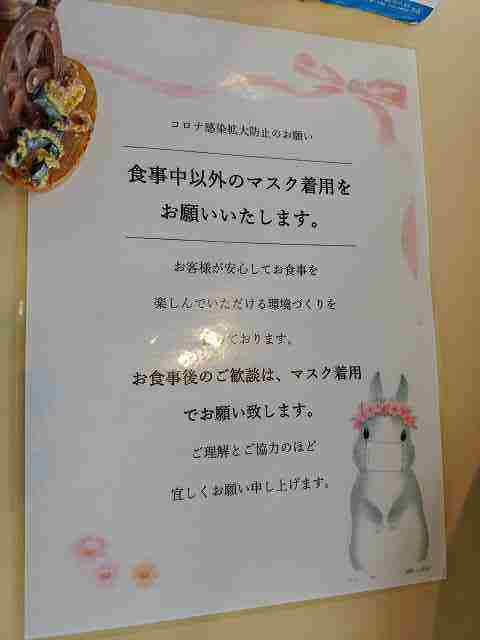 コロナ感染拡大防止のお願い
食事中以外のマスク着用を
お願いいたします。
お客様が安心してお食事を
楽しんでいただける環境づくりを
ております。
お食事後のご歓談は、マスク着用
でお願い致します。
ご理解とご協力のほど
宜しくお願い申し上げます。